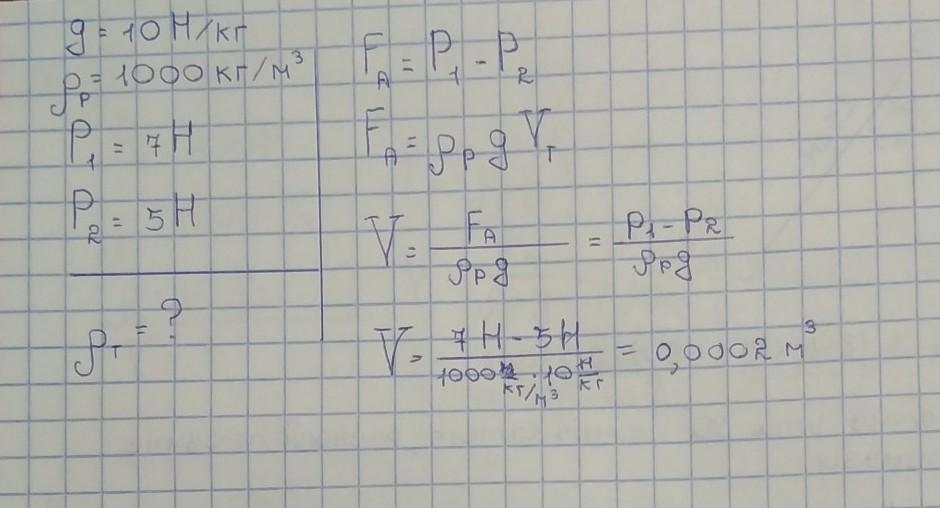 g = 10 Н/кг
ρр = 1000 кг/м³
P₁ = 7 Н
P₂ = 5 Н
ρт = ?
F_A = P₁ - P₂
F_A = ρр g Vт
V = F_A / ρр g = P₁ - P₂ / ρр g
V = 7 Н - 5 Н / 1000 кг/м³ · 10 Н/кг = 0,0002 м³